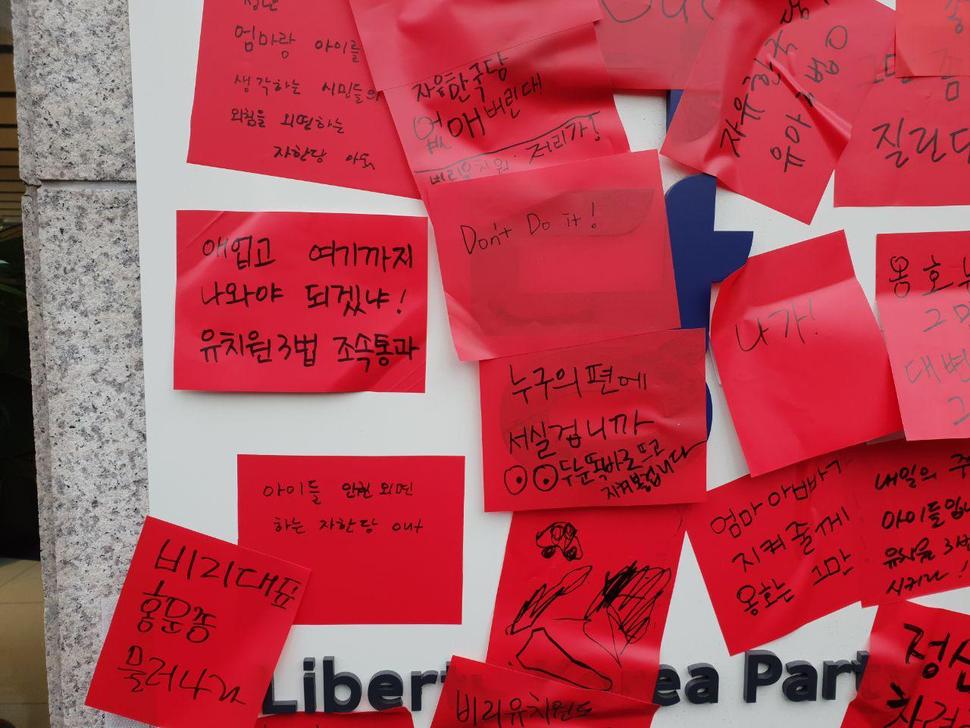 엄마랑 아이를
생각하는 시민들의
외침을 외면하는
자한당 아웃
자유한국당
없애버린대
비리유치원 저리가!
Out
자유한국당
질린다
Don't Do it!
애업고 여기까지
나와야 되겠냐!
유치원3법 조속통과
나가!
옹호
그만
대변
누구의 편에
서실겁니까
두눈똑바로뜨고
지켜봅니다
아이들 안전 외면
하는 자한당 out
비리대표
홍문종
물러나라
엄마아빠가
지켜줄께
옹호는 그만
내일의
아이들입니
유치원 3법
시키라!
비리유치원
정신
차려
Liberty Korea Party